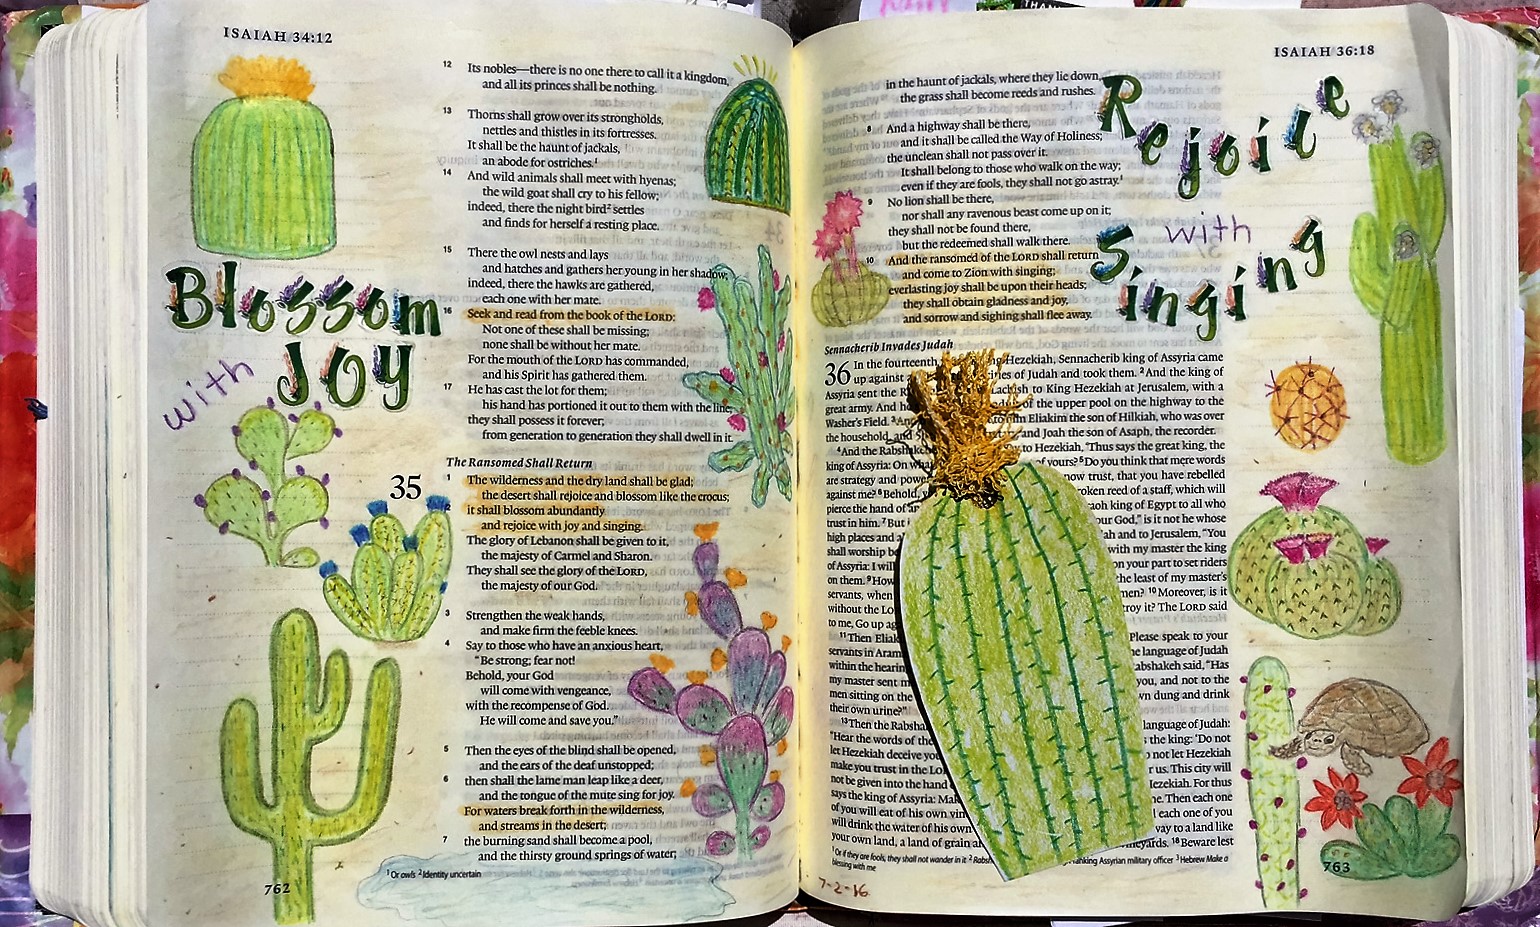 ISAIAH 34:12
12 Its nobles—there is no one there to call it a kingdom,
and all its princes shall be nothing.
13 Thorns shall grow over its strongholds,
nettles and thistles in its fortresses.
It shall be the haunt of jackals,
an abode for ostriches.1
14 And wild animals shall meet with hyenas;
the wild goat shall cry to his fellow;
indeed, there the night bird2 settles
and finds for herself a resting place.
15 There the owl nests and lays
and hatches and gathers her young in her shadow;
indeed, there the hawks are gathered,
each one with her mate.
16 Seek and read from the book of the LORD:
Not one of these shall be missing;
none shall be without her mate.
For the mouth of the LORD has commanded,
and his Spirit has gathered them.
17 He has cast the lot for them;
his hand has portioned it out to them with the line;
they shall possess it forever;
from generation to generation they shall dwell in it.
The Ransomed Shall Return
35
1 The wilderness and the dry land shall be glad;
the desert shall rejoice and blossom like the crocus;
2 it shall blossom abundantly
and rejoice with joy and singing.
The glory of Lebanon shall be given to it,
the majesty of Carmel and Sharon.
They shall see the glory of the LORD,
the majesty of our God.
3 Strengthen the weak hands,
and make firm the feeble knees.
4 Say to those who have an anxious heart,
"Be strong; fear not!
Behold, your God
will come with vengeance,
with the recompense of God.
He will come and save you."
5 Then the eyes of the blind shall be opened,
and the ears of the deaf unstopped;
6 then shall the lame man leap like a deer,
and the tongue of the mute sing for joy.
For waters break forth in the wilderness,
and streams in the desert;
7 the burning sand shall become a pool,
and the thirsty ground springs of water;
1 Or owls 2 Identity uncertain
762
Blossom
with
JOY
ISAIAH 36:18
in the haunt of jackals, where they lie down,
the grass shall become reeds and rushes.
8 And a highway shall be there,
and it shall be called the Way of Holiness;
the unclean shall not pass over it.
It shall belong to those who walk on the way;
even if they are fools, they shall not go astray.1
9 No lion shall be there,
nor shall any ravenous beast come up on it;
they shall not be found there,
but the redeemed shall walk there.
10 And the ransomed of the LORD shall return
and come to Zion with singing;
everlasting joy shall be upon their heads;
they shall obtain gladness and joy,
and sorrow and sighing shall flee away.
Rejoice
with
Singing
Sennacherib Invades Judah
36 In the fourteenth Hezekiah, Sennacherib king of Assyria came
up against of Judah and took them. 2And the king of
Assyria sent the to King Hezekiah at Jerusalem, with a
great army. And he of the upper pool on the highway to the
Washer's Field. Eliakim the son of Hilkiah, who was over
the household, and and Joah the son of Asaph, the recorder.
4And the Rabshakeh to Hezekiah, "Thus says the great king, the
king of Assyria: On what of yours? 5Do you think that mere words
are strategy and power now trust, that you have rebelled
against me? 6Behold, broken reed of a staff, which will
pierce the hand of king of Egypt to all who
trust in him. 7But our God," is it not he whose
high places and and to Jerusalem, "You
shall worship with my master the king
of Assyria: I will on your part to set riders
on them. 9How the least of my master's
servants, when 10Moreover, is it
without the The LORD said
to me, Go up
11Then Please speak to your
servants in language of Judah
within the hearing said, "Has
my master sent you, and not to the
men sitting on the own dung and drink
their own urine?"
13Then the language of Judah:
"Hear the words of the the king: 'Do not
let Hezekiah deceive you not let Hezekiah
make you trust in the us. This city will
not be given into the hand Hezekiah. For thus
says the king of Assyria: Then each one
of you will eat of his own each one of you
will drink the water of his own way to a land like
your own land, a land of grain vineyards. 18Beware lest
1 Or if they are fools, they shall not wander in it 2 ranking Assyrian military officer 3 Hebrew Make a
blessing with me
7-2-16
763